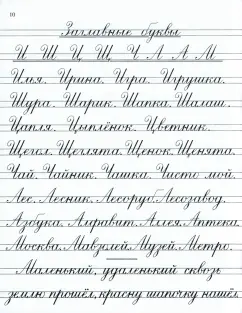 10
Заглавные буквы
И Ш Ц Щ Ч Л А М
Имя. Ирина. Игра. Игрушка.
Шура. Шарик. Шапка. Шалаш.
Цапля. Цыплёнок. Цветник.
Щегол. Щеглята. Щенок. Щенята.
Чай. Чайник. Чашка. Чисто мой.
Лес. Лесник. Лесоруб. Лесозавод.
Азбука. Алфавит. Аллея. Аптека.
Москва. Мавзолей. Музей. Метро.
Маленький, удаленький сквозь
землю прошёл, красну шапочку нашёл.